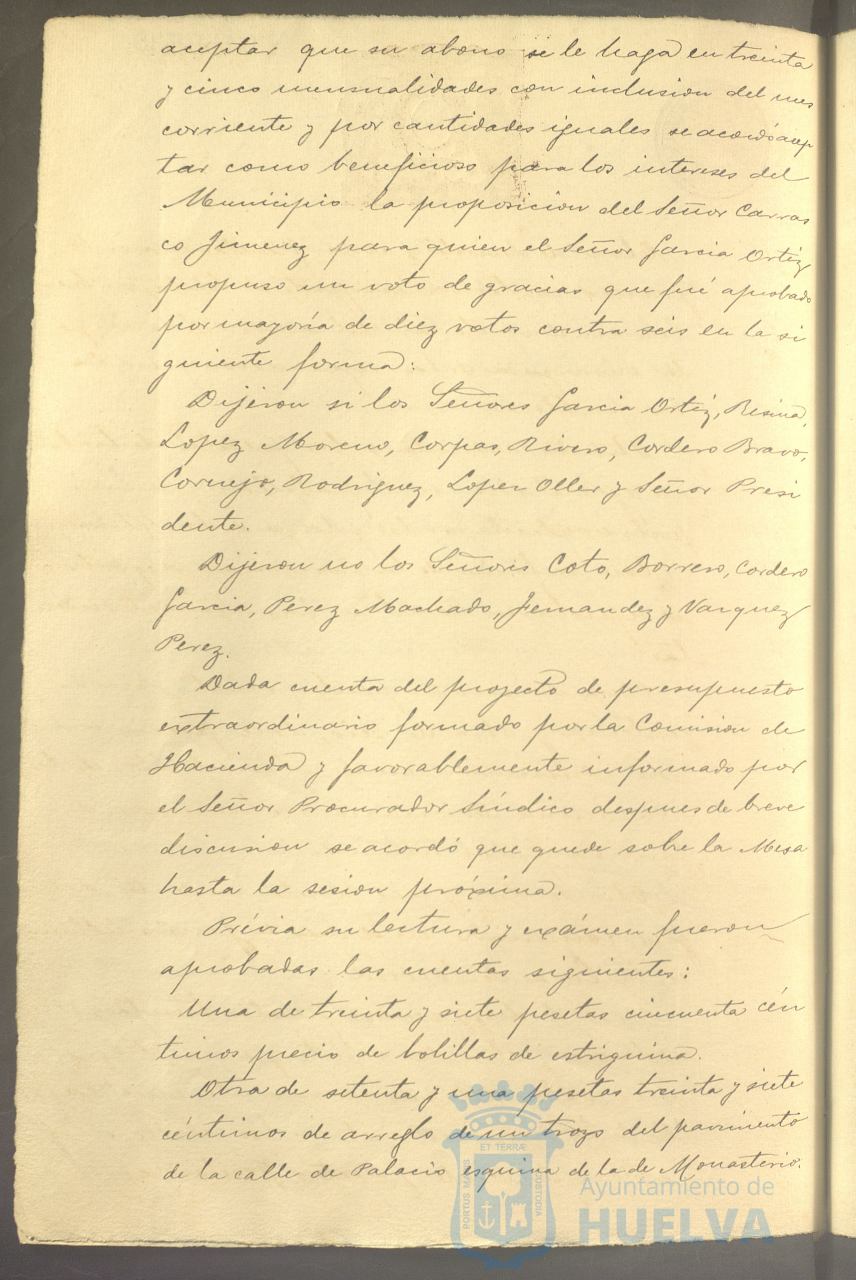 aceptar que su abono se le haga en treinta
y cinco mensualidades con inclusion del mes
corriente y por cantidades iguales se acordó acep
tar como beneficioso para los intereses del
Municipio la proposicion del Señor Carras
co Jimenez para quien el Señor Garcia Ortiz
propuso un voto de gracias que fué aprobado
por mayoría de diez votos contra seis en la si
guiente forma:
Dijeron si los Señores Garcia Ortiz, Resina,
Lopez Moreno, Corpas, Rivero, Cordero Bravo,
Cornejo, Rodriguez, Lopez Oller y Señor Presi
dente.
Dijeron no los Señores Coto, Borrero, Cordero
Garcia, Perez Machado, Fernandez y Vazquez
Perez.
Dada cuenta del proyecto de presupuesto
extraordinario formado por la Comision de
Hacienda y favorablemente informado por
el Señor Procurador Síndico despues de breve
discusion se acordó que quede sobre la Mesa
hasta la sesion próxima.
Prévia su lectura y exámen fueron
aprobadas las cuentas siguientes:
Una de treinta y siete pesetas cincuenta cén
timos precio de bolillas de estrignina.
Otra de setenta y una pesetas treinta y siete
céntimos de arreglo de un trozo del pavimento
de la calle de Palacio esquina de la de Monasterio.
PORTUS MARIS ET TERRÆ CUSTODIA
Ayuntamiento de
HUELVA